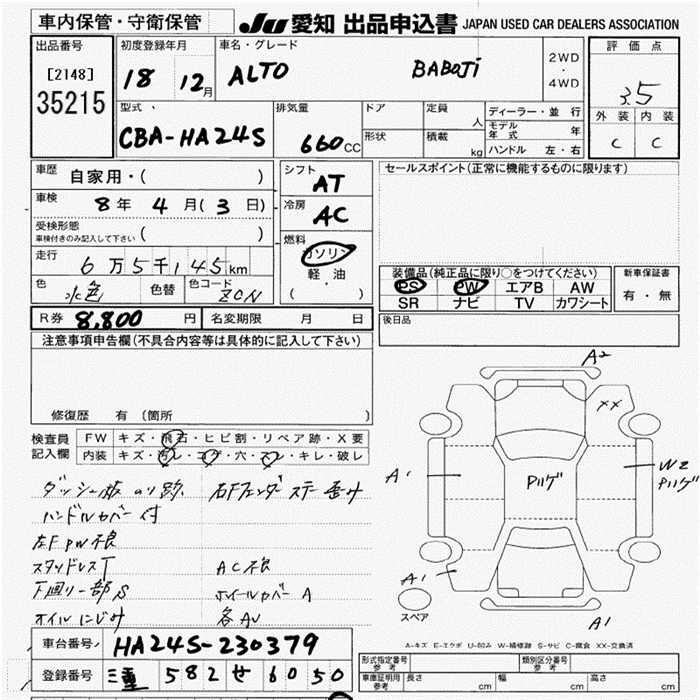 車内保管・守衛保管
JU 愛知 出品申込書 JAPAN USED CAR DEALERS ASSOCIATION
出品番号
[2148]
35215
初度登録年月
18 12月
車名・グレード
ALTO
2WD
・
4WD
評価点
3.5
外装 内装
C C
型式
CBA-HA24S
排気量
660 CC
ドア
定員 人
形状
積載 kg
ディーラー・並行
モデル年式 年
ハンドル 左・右
車歴
自家用・( )
車検
8年 4月(3日)
受検形態
車検付きのみ記入して下さい ( )
走行
6万5千145km
色 水色
色替
色コード ZCN
シフト
AT
冷房
AC
燃料
ガソリン
軽・油
( )
セールスポイント(正常に機能するものに限ります)
装備品(純正品に限り〇をつけてください)
PS PW エアB AW
SR ナビ TV カワシート
新車保証書
有・無
R券 8,800円
名変期限 月 日
後日品
注意事項申告欄(不具合内容等は具体的に記入して下さい)
修復歴 有 (箇所 )
検査員
記入欄
FW キズ・飛石・ヒビ割・リペア跡・X要
内装 キズ・汚レ・コゲ・穴・スレ・キレ・破レ
ダッシュ板のり跡 右Fフェンダーステー歪み
ハンドルカバー付
左FPW不良
スタッドレスT AC不良
下回り一部S ホイールカバーA
オイルにじみ 各AU
A2
XX
A1
Pハゲ
W2
Pハゲ
A1
スペア
A1
A-キズ E-エクボ U-凹み W-補修跡 S-サビ C-腐食 XX-交換済
車台番号 HA24S-230379
登録番号 三重 582せ6050
形式指定番号
参考
類別区分番号
参考
車庫証明用
参考
長さ cm
幅 cm
高さ cm